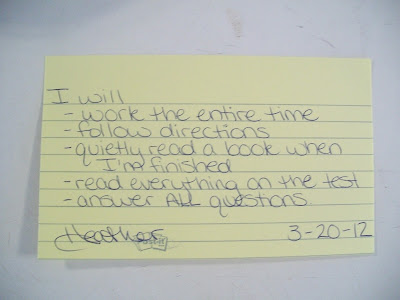 I will
- work the entire time
- follow directions
- quietly read a book when
I'm finished
- read everything on the test
- answer ALL questions.
Heather 3-20-12